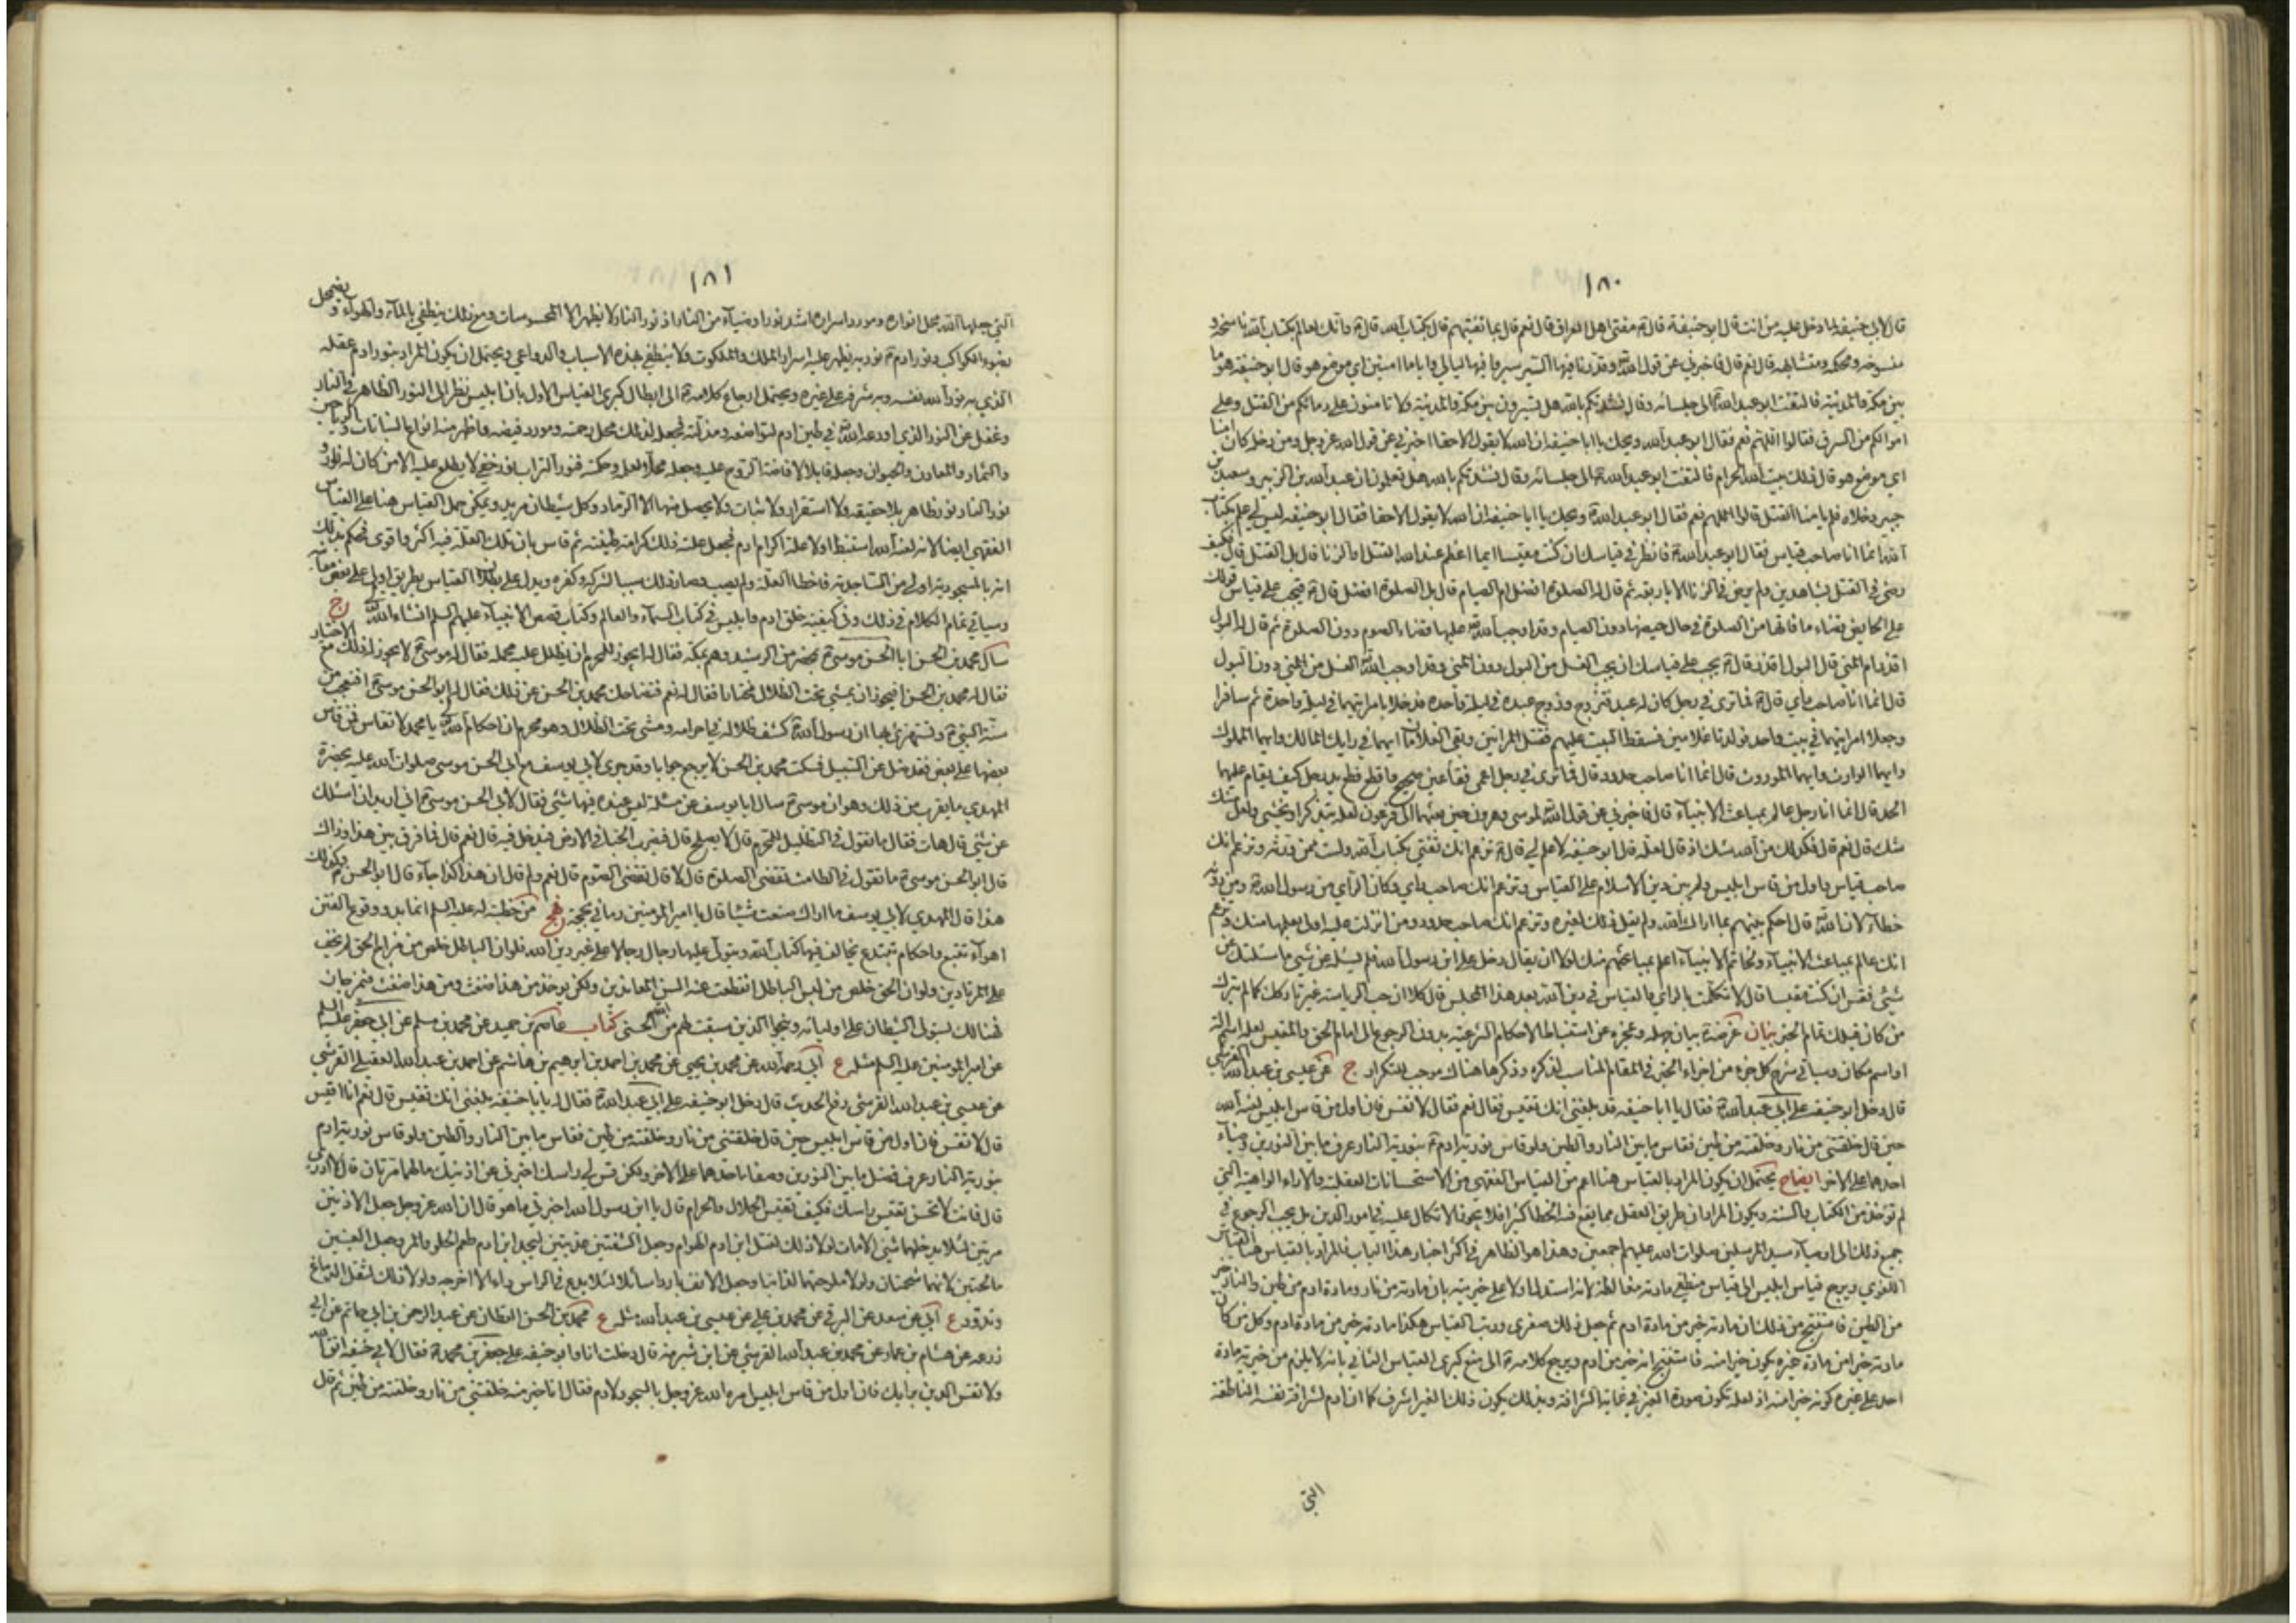 ١٨٠
قال لابي حنيفة لما دخل عليه من انت قال ابو حنيفة قال ع مفتي اهل العراق قال نعم قال بما تفتيهم قال بكتاب الله قال ع وانك لعالم بكتاب الله ناسخه و
منسوخه ومحكمه ومتشابهه قال نعم قال فاخبرني عن قول الله وقدرنا فيها السير سيروا فيها ليالي واياما امنين اي موضع هو قال ابو حنيفة هو ما
بين مكة والمدينة فالتفت ابو عبد الله ع الى جلسائه وقال نشدتكم بالله هل تسيرون بين مكة والمدينة ولا تامنون على دمائكم من القتل وعلى
اموالكم من السرق فقالوا اللهم نعم فقال ابو عبد الله ويحك يا ابا حنيفة ان الله لا يقول الا حقا اخبرني عن قول الله عز وجل ومن دخله كان امنا
اي موضع هو قال ذلك بيت الله الحرام فالتفت ابو عبد الله ع الى جلسائه وقال نشدتكم بالله هل تعلمون ان عبد الله بن الزبير وسعيد بن
جبير دخلاه فلم يامنا القتل قالوا اللهم نعم فقال ابو عبد الله ع ويحك يا ابا حنيفة ان الله لا يقول الا حقا فقال ابو حنيفة ليس لي علم بكتاب
الله انما انا صاحب قياس فقال ابو عبد الله ع فانظر في قياسك ان كنت مقيسا ايما اعظم عند الله القتل او الزنا قال بل القتل قال فكيف
رضي في القتل بشاهدين ولم يرض في الزنا الا باربعة ثم قال له الصلوة افضل ام الصيام قال بل الصلوة افضل قال ع فيجب على قياس قولك
على الحايض قضاء ما فاتها من الصلوة في حال حيضها دون الصيام وقد اوجب الله عليها قضاء الصوم دون الصلوة ثم قال له البول
اقذر ام المني قال البول اقذر قال ع يجب على قياسك ان يجب الغسل من البول دون المني وقد اوجب الله الغسل من المني دون البول
قال انما انا صاحب راي قال ع فما ترى في رجل كان له عبد فتزوج وزوج عبده في ليلة واحدة فدخلا بامراتيهما في ليلة واحدة ثم سافرا
وجعلا امراتيهما في بيت واحد فولدتا غلامين فسقط البيت عليهم فقتل المراتين وبقي الغلامان ايهما في رايك المالك وايهما المملوك
وايهما الوارث وايهما الموروث قال انما انا صاحب حدود قال فما ترى في رجل اعمى فقا عين صحيح واقطع قطع يد رجل كيف يقام عليهما
الحد قال انما انا رجل عالم بمباعث الانبياء قال فاخبرني عن قول الله لموسى وهرون حين بعثهما الى فرعون لعله يتذكر او يخشى ولعل منك
شك قال نعم قال فكذلك من الله شك اذ قال لعله قال ابو حنيفة لا علم لي قال ع تزعم انك تفتي بكتاب الله ولست ممن ورثه وتزعم انك
صاحب قياس واول من قاس ابليس ولم يبن دين الاسلام على القياس وتزعم انك صاحب راي وكان الراي من رسول الله ص ومن دونه
خطاء لان الله قال احكم بينهم بما اراك الله ولم يقل ذلك لغيره وتزعم انك صاحب حدود ومن انزلت عليه اولى بعلمها منك وتزعم
انك عالم بمباعث الانبياء ولخاتم الانبياء اعلم بمباعثهم منك لولا ان يقال دخل على ابن رسول الله فلم يسئله عن شئ ما سئلتك عن
شئ فقس ان كنت مقيسا قال لا تكلمت بالراي والقياس في دين الله بعد هذا المجلس قال كلا ان حب الرياسة غير تاركك كما لم يترك
من كان قبلك تمام الخبر بيان غرضه ع بيان جهله وعجزه عن استنباط الاحكام الشرعية بدون الرجوع الى امام الحق والمقيس لعله اسم الة
او اسم مكان وسياتي شرح كل جزء من اجزاء الخبر في المقام المناسب لذكره وذكرها هناك موجب للتكرار ج عن عيسى بن عبد الله القرشي
قال دخل ابو حنيفة على ابي عبد الله ع فقال يا ابا حنيفة قد بلغني انك تقيس فقال نعم فقال لا تقس فان اول من قاس ابليس لعنه الله
حين قال خلقتني من نار وخلقته من طين فقاس ما بين النار والطين ولو قاس نورية ادم ع بنورية النار عرف ما بين النورين وضياء
احدهما على الاخر ايضاح يحتمل ان يكون المراد بالقياس هنا اعم من القياس الفقهي من الاستحسانات العقلية والاراء الواهية التي
لم تؤخذ من الكتاب والسنة ويكون المراد ان طريق العقل مما يقع فيه الخطا كثيرا فلا يجوز الاتكال عليه في امور الدين بل يجب الرجوع في
جميع ذلك الى اوصياء سيد المرسلين صلوات الله عليهم اجمعين وهذا هو الظاهر في اكثر اخبار هذا الباب فالمراد بالقياس هنا القياس
اللغوي ويرجع قياس ابليس الى قياس منطقي مادته مغالطة لانه استدل اولا على خيريته بان مادته من نار ومادة ادم من طين والنار خير
من الطين فاستنتج من ذلك ان مادته خير من مادة ادم ثم جعل ذلك صغرى ورتب القياس هكذا مادته خير من مادة ادم وكل من كان
مادته خيرا من مادة غيره يكون خيرا منه فاستنتج انه خير من ادم ويرجع كلامه ع الى منع كبرى القياس الثاني بانه لا يلزم من خيرية مادة
احد على غيره كونه خيرا منه اذ لعله تكون صورة الغير في غاية الشرافة وبذلك يكون ذلك الغير اشرف كما ان ادم لشرافة نفسه الناطقة
التي
١٨١
التي جعلها الله محل انواره ومورد اسراره اشد نورا وضياء من النار اذ نور النار لا يظهر الا المحسوسات ومع ذلك ينطفي بالماء والهواء ويضمحل
بضوء الكواكب ونور ادم ع نور به يظهر عليه اسرار الملك والملكوت ولا ينطفي بهذه الاسباب والدواعي ويحتمل ان يكون المراد بنور ادم عقله
الذي به نور الله نفسه وبه شرفه على غيره ويحتمل ارجاع كلامه ع الى ابطال كبرى القياس الاول بان ابليس نظر الى النور الظاهر في النار
وغفل عن النور الذي اودعه الله في طين ادم لتواضعه ومذلته فجعله لذلك محل رحمته ومورد فيضه واظهر منه انواع النباتات والرياحين
والثمار والمعادن والحيوان وجعله قابلا لافاضة الروح عليه وجعله محلا لعلمه وحكمته فنور التراب نور خفي لا يطلع عليه الا من كان له نور و
نور النار نور ظاهر بلا حقيقة ولا استقرار ولا ثبات ولا يحصل منها الا الرماد وكل شيطان مريد ويمكن حمل القياس هنا على القياس
الفقهي ايضا لانه لعنه الله استنبط اولا علة اكرام ادم فجعل علة ذلك كرامة طينته ثم قاس بان تلك العلة فيه اكثر واقوى فحكم بذلك
انه بالمسجودية اولى من الساجدية فاخطا العلة ولم يصب وصار ذلك سببا لشركه وكفره ويدل على بطلان القياس بطريق اولى على بعض معانيه
وسياتي تمام الكلام في ذلك وفي كيفية خلق ادم وابليس في كتاب السماء والعالم وكتاب قصص الانبياء عليهم السلم انشاء الله تعالى ج
سال محمد بن الحسن ابا الحسن موسى ع بمحضر من الرشيد وهم بمكة فقال له ايجوز للمحرم ان يظلل عليه محمله فقال له موسى ع لا يجوز له ذلك مع الاختيار
فقال له محمد بن الحسن افيجوز ان يمشي تحت الظلال مختارا فقال له نعم فتضاحك محمد بن الحسن عن ذلك فقال له ابو الحسن موسى ع اتعجب من
سنة النبي ص وتستهزئ بها ان رسول الله ص كشف ظلاله في احرامه ومشى تحت الظلال وهو محرم ان احكام الله يا محمد لا تقاس فمن قاس
بعضها على بعض فقد ضل عن السبيل فسكت محمد بن الحسن لا يرجع جوابا وقد جرى لابي يوسف مع ابي الحسن موسى صلوات الله عليه بحضرة
المهدي ما يقرب من ذلك وهو ان موسى ع سال ابا يوسف عن مسئلة ليس عنده فيها شئ فقال لابي الحسن موسى ع اني اريد ان اسئلك
عن شئ قال هات فقال ما تقول في التظليل للمحرم قال لا يصلح قال فيضرب الخباء في الارض فيدخل فيه قال نعم قال فما فرق بين هذا وذاك
قال ابو الحسن موسى ع ما تقول في الطامث تقضي الصلوة قال لا قال تقضي الصوم قال نعم قال ولم قال ان هذا كذا جاء قال ابو الحسن ع وكذلك
هذا قال المهدي لابي يوسف ما اراك صنعت شيئا قال يا امير المؤمنين رماني بحجة نهج من خطبة له عليه السلم انما بدو وقوع الفتن
اهواء تتبع واحكام تبتدع يخالف فيها كتاب الله ويتولى عليها رجال رجالا على غير دين الله فلو ان الباطل خلص من مزاج الحق لم يخف
على المرتادين ولو ان الحق خلص من لبس الباطل انقطعت عنه السن المعاندين ولكن يؤخذ من هذا ضغث ومن هذا ضغث فيمزجان
فهنالك يستولي الشيطان على اوليائه وينجوا الذين سبقت لهم من الله الحسنى كتاب عاصم بن حميد عن محمد بن مسلم عن ابي جعفر عليه السلم
عن امير المؤمنين عليه السلم مثله ع ابي رحمه الله عن محمد بن يحيى عن محمد بن احمد بن ابرهيم بن هاشم عن احمد بن عبد الله العقيلي القرشي
عن عيسى بن عبد الله القرشي رفع الحديث قال دخل ابو حنيفة على ابي عبد الله ع فقال له يا با حنيفة بلغني انك تقيس قال نعم انا اقيس
قال لا تقس فان اول من قاس ابليس حين قال خلقتني من نار وخلقته من طين فقاس ما بين النار والطين ولو قاس نورية ادم
بنورية النار عرف فضل ما بين النورين وصفاء احدهما على الاخر ولكن قس لي راسك اخبرني عن اذنيك ما لهما مرتان قال لا ادري
قال فانت لا تحسن تقيس راسك فكيف تقيس الحلال والحرام قال يا ابن رسول الله اخبرني ما هو قال ان الله عز وجل جعل الاذنين
مرتين لئلا يدخلهما شئ الا مات لولا ذلك لقتل ابن ادم الهوام وجعل الشفتين عذبتين ليجد ابن ادم طعم الحلو والمر وجعل العينين
مالحتين لانهما شحمتان ولولا ملوحتهما لذابتا وجعل الانف باردا سائلا لئلا يدع في الراس داء الا اخرجه ولولا ذلك لثقل الدماغ
وتدود ع ابي عن سعد عن البرقي عن محمد بن علي عن عيسى بن عبد الله مثله ع محمد بن الحسن القطان عن عبد الرحمن بن ابي حاتم عن ابي
زرعة عن هشام بن عمار عن محمد بن عبد الله القرشي عن ابن شبرمة قال دخلت انا وابو حنيفة على جعفر بن محمد ع فقال لابي حنيفة اتق الله
ولا تقس الدين برايك فان اول من قاس ابليس امره الله عز وجل بالسجود لادم فقال انا خير منه خلقتني من نار وخلقته من طين ثم قال